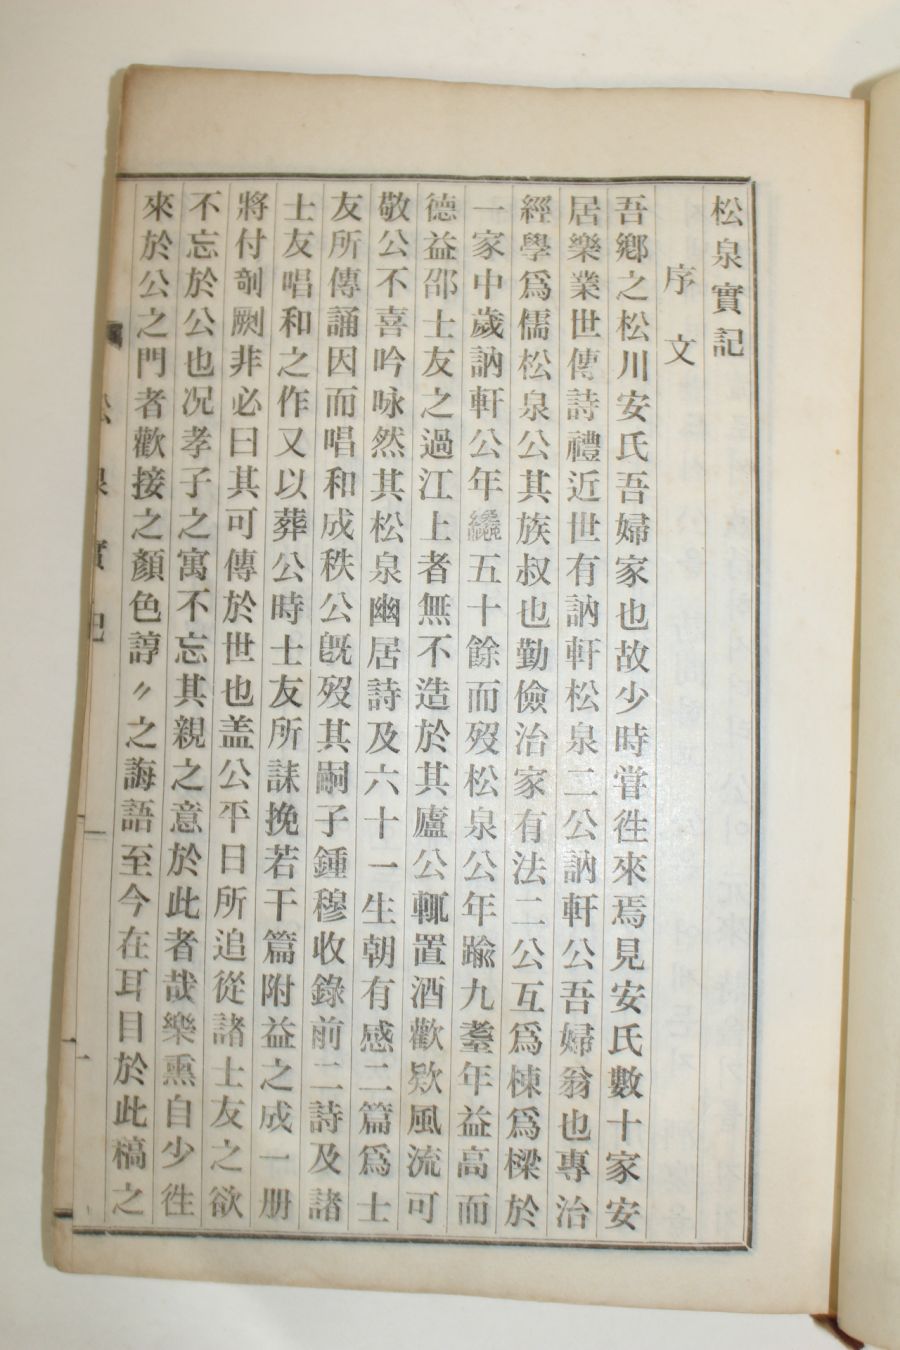 松泉實記
序文
吾鄕之松川安氏吾婦家也故少時嘗徃來焉見安氏數十家安
居樂業世傳詩禮近世有訥軒松泉二公訥軒公吾婦翁也專治
經學爲儒松泉公其族叔也勤儉治家有法二公互爲棟爲樑於
一家中歲訥軒公年纔五十餘而歿松泉公年踰九耋年益高而
德益邵士友之過江上者無不造於其廬公輒置酒歡欵風流可
敬公不喜吟咏然其松泉幽居詩及六十一生朝有感二篇爲士
友所傳誦因而唱和成秩公旣歿其嗣子鍾穆收錄前二詩及諸
士友唱和之作又以葬公時士友所誄挽若干篇附益之成一册
將付剞劂非必曰其可傳於世也盖公平日所追從諸士友之欲
不忘於公也况孝子之寓不忘其親之意於此者哉樂熏自少徃
來於公之門者歡接之顏色諄〃之誨語至今在耳目於此稿之
松泉實記
一